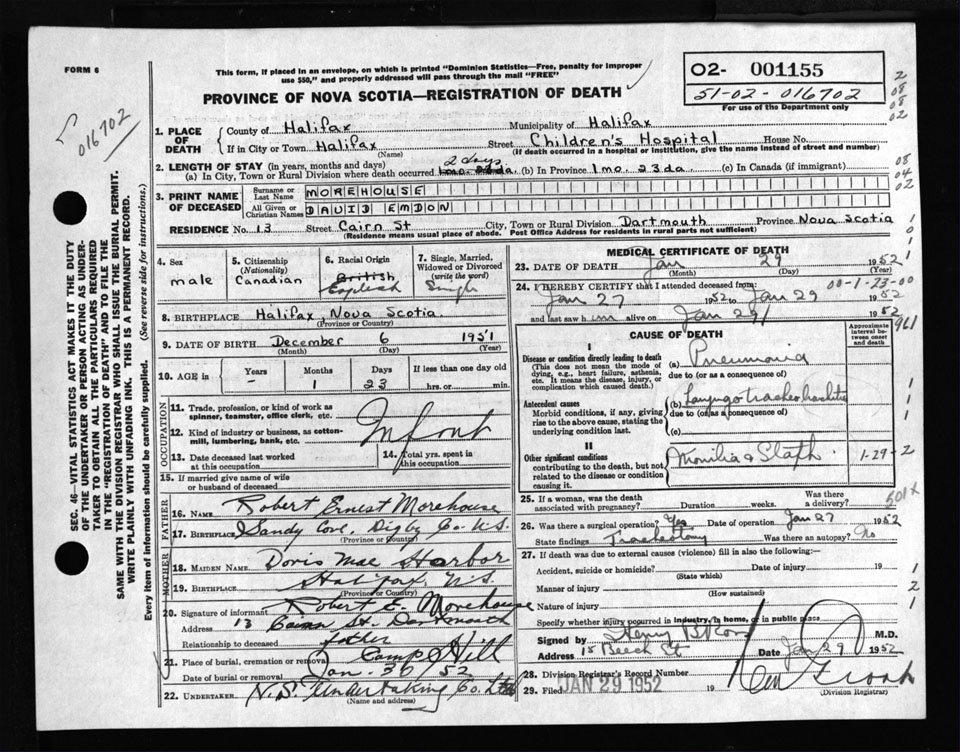 FORM 6
This form, if placed in an envelope, on which is printed "Dominion Statistics—Free, penalty for improper
use $50," and properly addressed will pass through the mail "FREE"
PROVINCE OF NOVA SCOTIA—REGISTRATION OF DEATH
02- 001155
51-02-016702
For use of the Department only
016702
2
08
08
02
1. PLACE OF DEATH
County of Halifax Municipality of Halifax
If in City or Town Halifax Street Children's Hospital House No.
(Name) (If death occurred in a hospital or institution, give the name instead of street and number)
2. LENGTH OF STAY (in years, months and days) 2 days.
(a) In City, Town or Rural Division where death occurred 1mo. 23da. (b) In Province 1 mo. 23da. (c) In Canada (if immigrant)
08
04
02
3. PRINT NAME OF DECEASED
Surname or Last Name MOREHOUSE
All Given or Christian Names DAVID EMDON
RESIDENCE No. 13 Street Cairn St City, Town or Rural Division Dartmouth Province Nova Scotia
(Residence means usual place of abode. Post Office Address for residents in rural parts not sufficient)
4. Sex
male
5. Citizenship
(Nationality)
Canadian
6. Racial Origin
British
English
7. Single, Married, Widowed or Divorced
(write the word)
Single
8. BIRTHPLACE Halifax Nova Scotia.
(Province or Country)
9. DATE OF BIRTH December 6 1951
(Month) (Day) (Year)
10. AGE in
Years Months Days If less than one day old
- 1 23 hrs. or min.
OCCUPATION
11. Trade, profession, or kind of work as
spinner, teamster, office clerk, etc.
12. Kind of industry or business, as cotton-
mill, lumbering, bank, etc.
Infant
13. Date deceased last worked
at this occupation
14. Total yrs. spent in
this occupation
15. If married give name of wife
or husband of deceased
FATHER
16. NAME Robert Ernest Morehouse
17. BIRTHPLACE Sandy Cove, Digby Co N.S.
(Province or Country)
MOTHER
18. MAIDEN NAME Doris Mae Harbor
19. BIRTHPLACE Halifax, N.S.
(Province or Country)
20. Signature of informant Robert E. Morehouse
Address 13 Cairn St. Dartmouth
Relationship to deceased father
21. Place of burial, cremation or removal Camp Hill
Date of burial or removal Jan. 30/52
22. UNDERTAKER N.S. Undertaking Co. Ltd
(Name and address)
MEDICAL CERTIFICATE OF DEATH
23. DATE OF DEATH Jan 29 1952
(Month) (Day) (Year)
00-1-23-00
24. I HEREBY CERTIFY that I attended deceased from:
Jan 27 1952 to Jan 29 1952
and last saw him alive on Jan 29/ 1952
961
CAUSE OF DEATH
Approximate interval between onset and death
I
Disease or condition directly leading to death
(This does not mean the mode of
dying, e.g., heart failure, asthenia,
etc. It means the disease, injury, or
complication which caused death.)
(a) Pneumonia
due to (or as a consequence of)
Antecedent causes
Morbid conditions, if any, giving
rise to the above cause, stating the
underlying condition last.
(b) Laryngo tracheo bronchitis
due to (or as a consequence of)
(c)
II
Other significant conditions
contributing to the death, but not
related to the disease or condition
causing it.
Monilia & Staph.
1-29-2
25. If a woman, was the death
associated with pregnancy? Duration weeks. Was there a delivery?
501x
26. Was there a surgical operation? Yes Date of operation Jan 27 1952
State findings Tracheotomy Was there an autopsy? No
27. If death was due to external causes (violence) fill in also the following:—
Accident, suicide or homicide? Date of injury 19
(State which)
Manner of injury
(How sustained)
Nature of injury
Specify whether injury occurred in industry, in home, or in public place
Signed by Henry B Ross M.D.
Address 15 Beech St Date Jan 29 1952
28. Division Registrar's Record Number
29. Filed JAN 29 1952 19
(Division Registrar)
SEC. 46—VITAL STATISTICS ACT MAKES IT THE DUTY
OF THE UNDERTAKER OR PERSON ACTING AS UNDER-
TAKER TO OBTAIN ALL THE PARTICULARS REQUIRED
IN THE "REGISTRATION OF DEATH" AND TO FILE THE
SAME WITH THE DIVISION REGISTRAR WHO SHALL ISSUE THE BURIAL PERMIT.
WRITE PLAINLY WITH UNFADING INK. THIS IS A PERMANENT RECORD.
Every item of information should be carefully supplied. (See reverse side for instructions.)